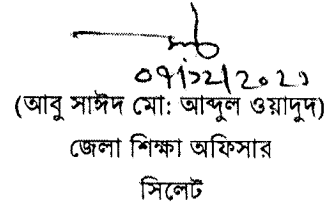 ০৭/১২/২০২০
(আবু সাঈদ মো: আব্দুল ওয়াদুদ)
জেলা শিক্ষা অফিসার
সিলেট